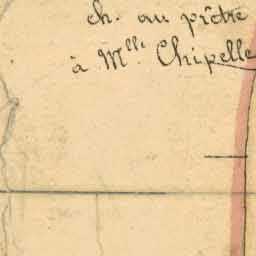 ch. au prêtre
à Mlle. Chipelle